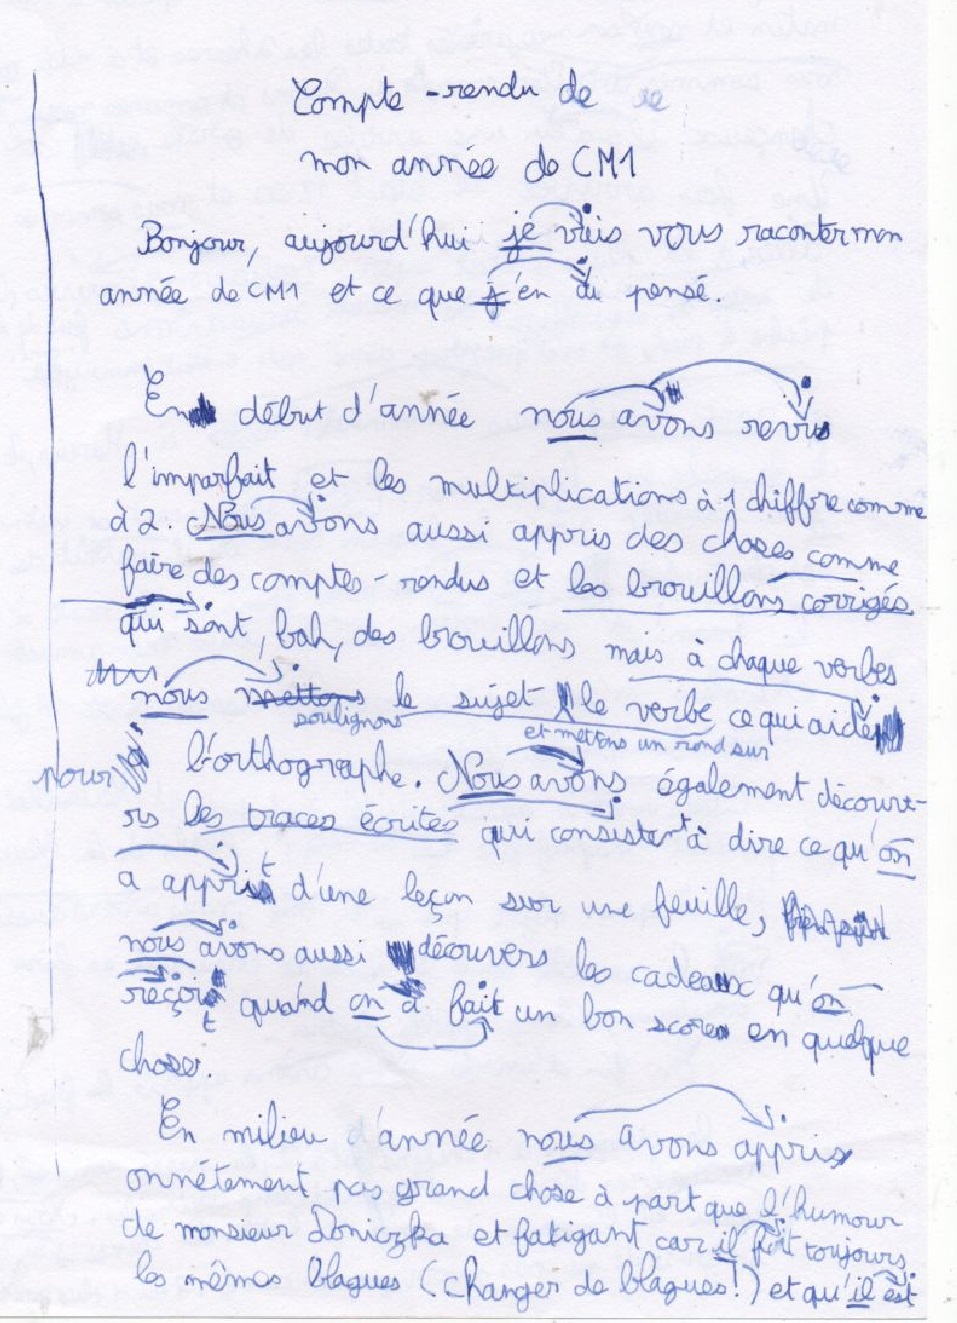 Compte-rendu de
mon année de CM1
Bonjour, aujourd'hui je vais vous raconter mon
année de CM1 et ce que j'en ai pensé.
En début d'année nous avons revus
l'imparfait et les multiplications à 1 chiffre comme
à 2. Nous avons aussi appris des choses comme
faire des comptes-rendus et les brouillons corrigés,
qui sont, bah, des brouillons mais à chaque verbes
nous soulignons le sujet et mettons un rond sur le verbe ce qui aide
pour l'orthographe. Nous avons également découve-
rs les traces écrites qui consistent à dire ce qu'on
a apprit d'une leçon sur une feuille,
nous avons aussi découvers les cadeaux qu'on
reçoit quand on a fait un bon score en quelque
chose.
En milieu d'année nous avons appris
onnétement pas grand chose à part que l'humour
de monsieur Doniczka et fatigant car il fait toujours
les mêmes blagues (changer de blagues!) et qu'il est